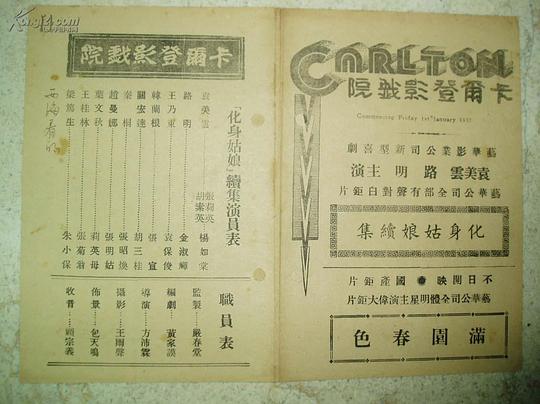 CARLTON
卡爾登影戲院
Commencing Friday 1st January 1937
藝華影業公司新型喜劇
袁美雲 路明 主演
藝華公司全部有聲對白鉅片
化身姑娘續集
不日開映 ● 國產鉅片
藝華公司全體明星主演偉大鉅片
滿園春色
卡爾登影戲院
「化身姑娘」續集演員表
袁美雲 張莉英 楊如棠
路明 金淑輝
王乃東 袁保俊
韓蘭根 張宣
關宏達 胡三桂
秦桐 張昭煥
趙曼娜 張明姑
葉文秋 莉英母
王桂林 張菊翁
梁篤生 朱小保
職員表
監製……嚴春堂
編劇……黃家謨
導演……方沛霖
攝影……王雨聲
佈景……包天鳴
收音……顧宗義